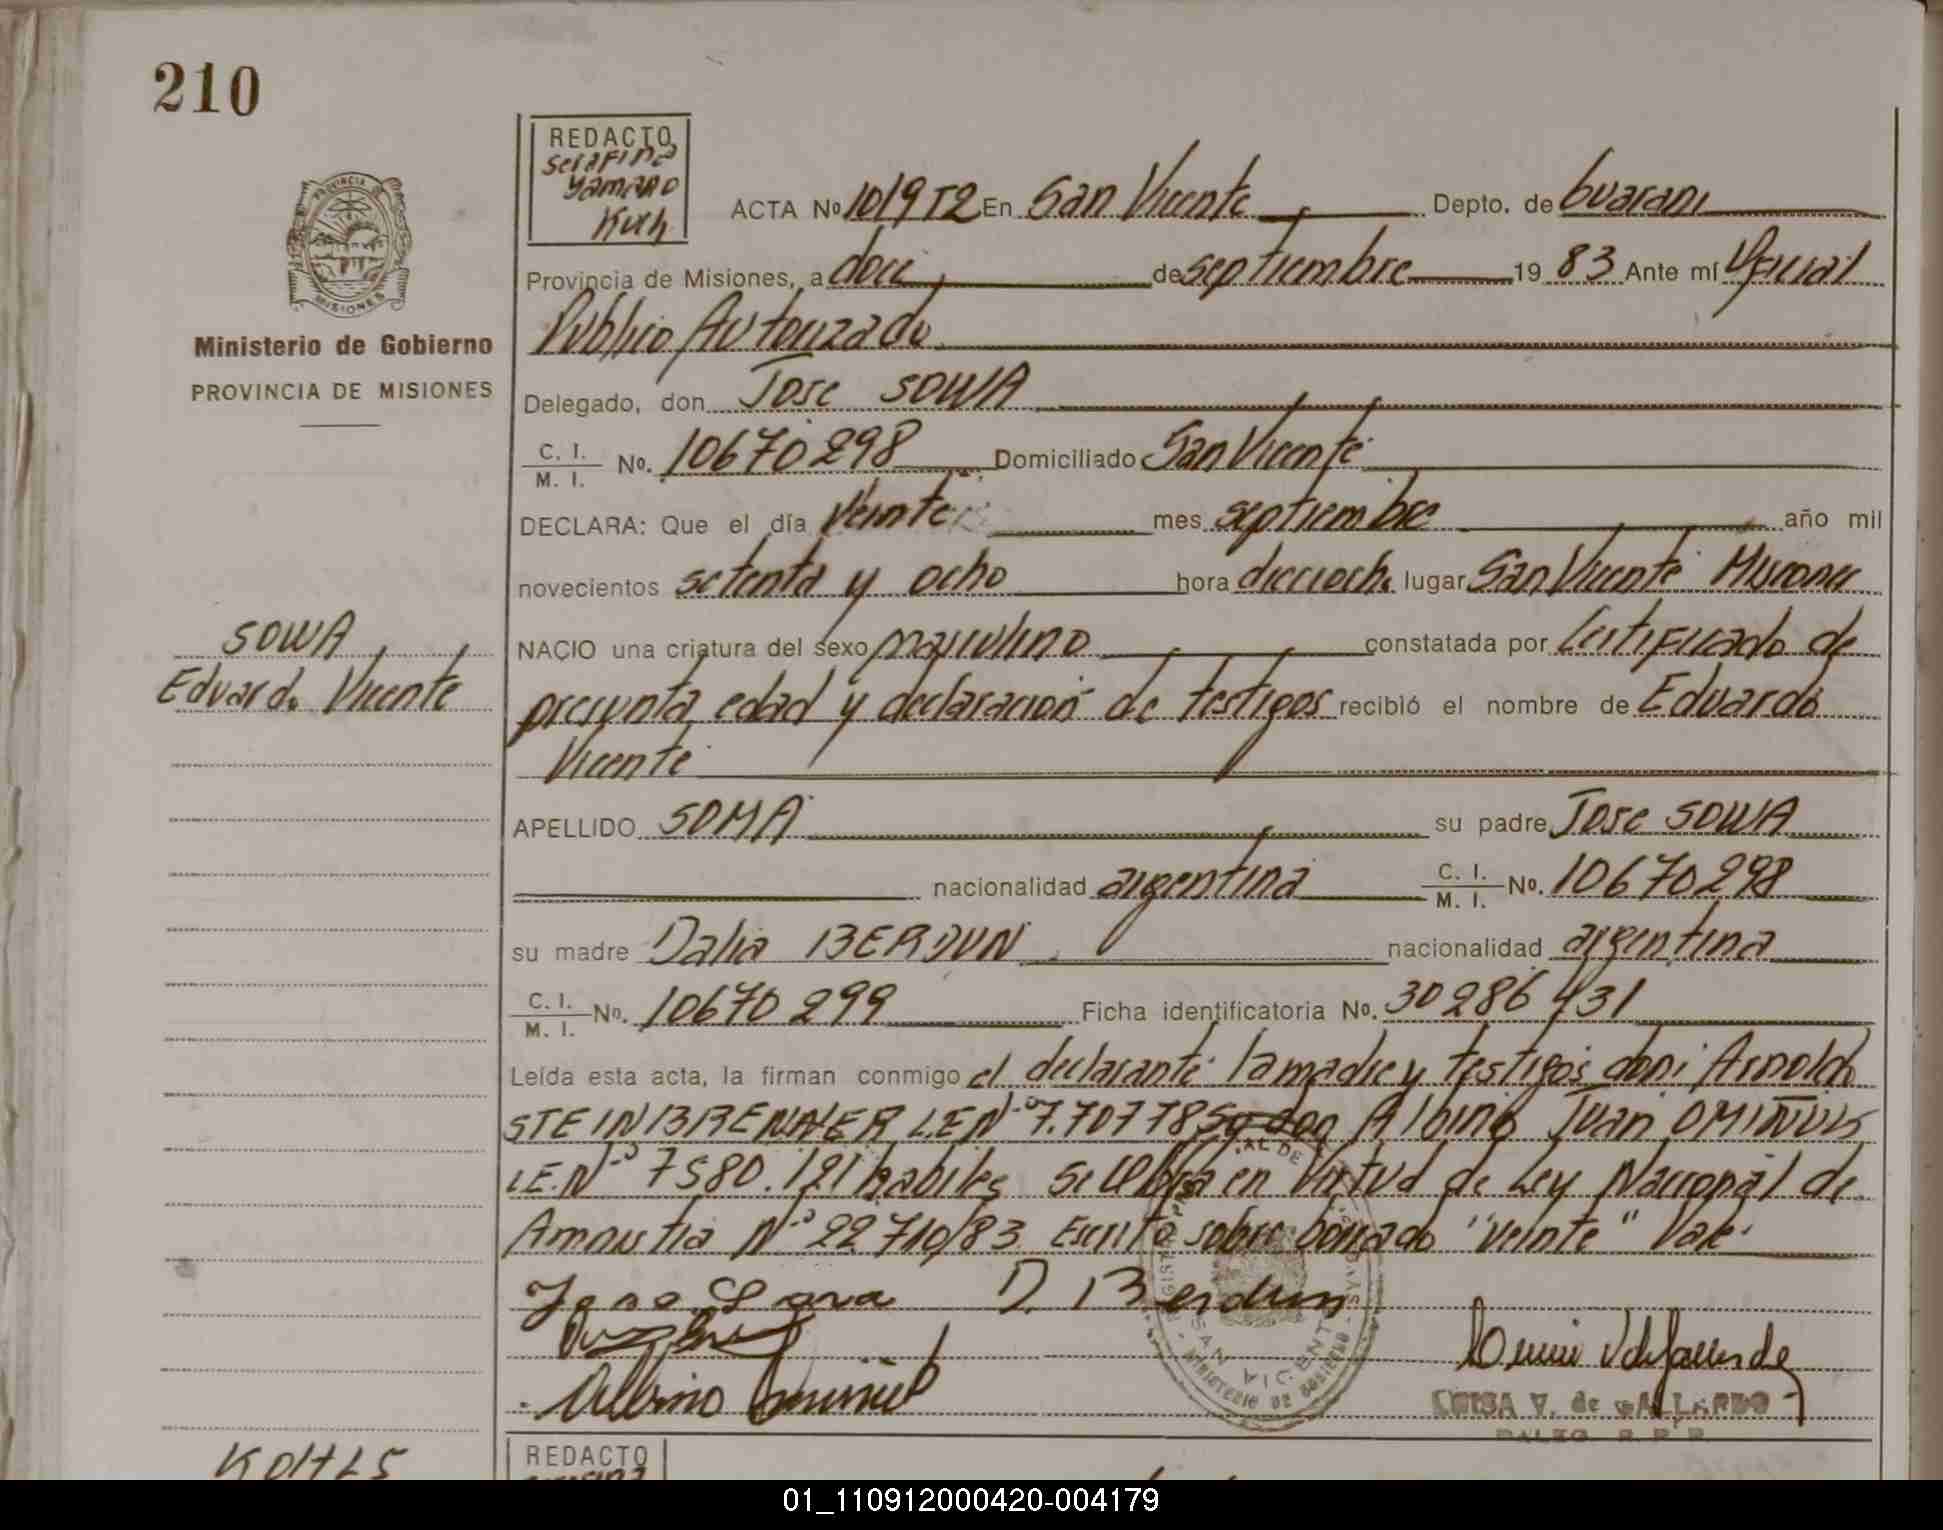 210
REDACTO
Serafina
Yamano
Kuh
ACTA No 1019 T2 En San Vicente Depto. de Guarani
Provincia de Misiones, a doce de septiembre 19 83 Ante mí Oficial
Publico Autorizado
PROVINCIA DE
MISIONES
Ministerio de Gobierno
PROVINCIA DE MISIONES
Delegado, don Jose SOWA
C. I.
M. I. No. 10670298 Domiciliado San Vicente
DECLARA: Que el día Veinte mes septiembre año mil
novecientos setenta y ocho hora dieciocho lugar San Vicente Misiones
SOWA
Eduardo Vicente
NACIO una criatura del sexo masculino constatada por Certificado de
presunta edad y declaracion de testigos recibió el nombre de Eduardo
Vicente
APELLIDO SOWA su padre Jose SOWA
nacionalidad argentina C. I.
M. I. No. 10670298
su madre Dalia BERDUN nacionalidad argentina
C. I.
M. I. No. 10670299 Ficha identificatoria No. 30286431
Leída esta acta, la firman conmigo el declarante la madre y testigos don: Arnoldo
STEINBRENNER L.E.Nº 7.707785 don Albino Juan
L.E.Nº 7580.121 habiles Se labra en Virtud de Ley Nacional de
Amnistia Nº 22710/83 Escrito sobre borrado "veinte" Vale.
Jose Sova D. Berdun
Albino
SAN VICENTE
MINISTERIO DE GOBIERNO
LUISA V. de GALLARDO
REDACTO
01_110912000420-004179